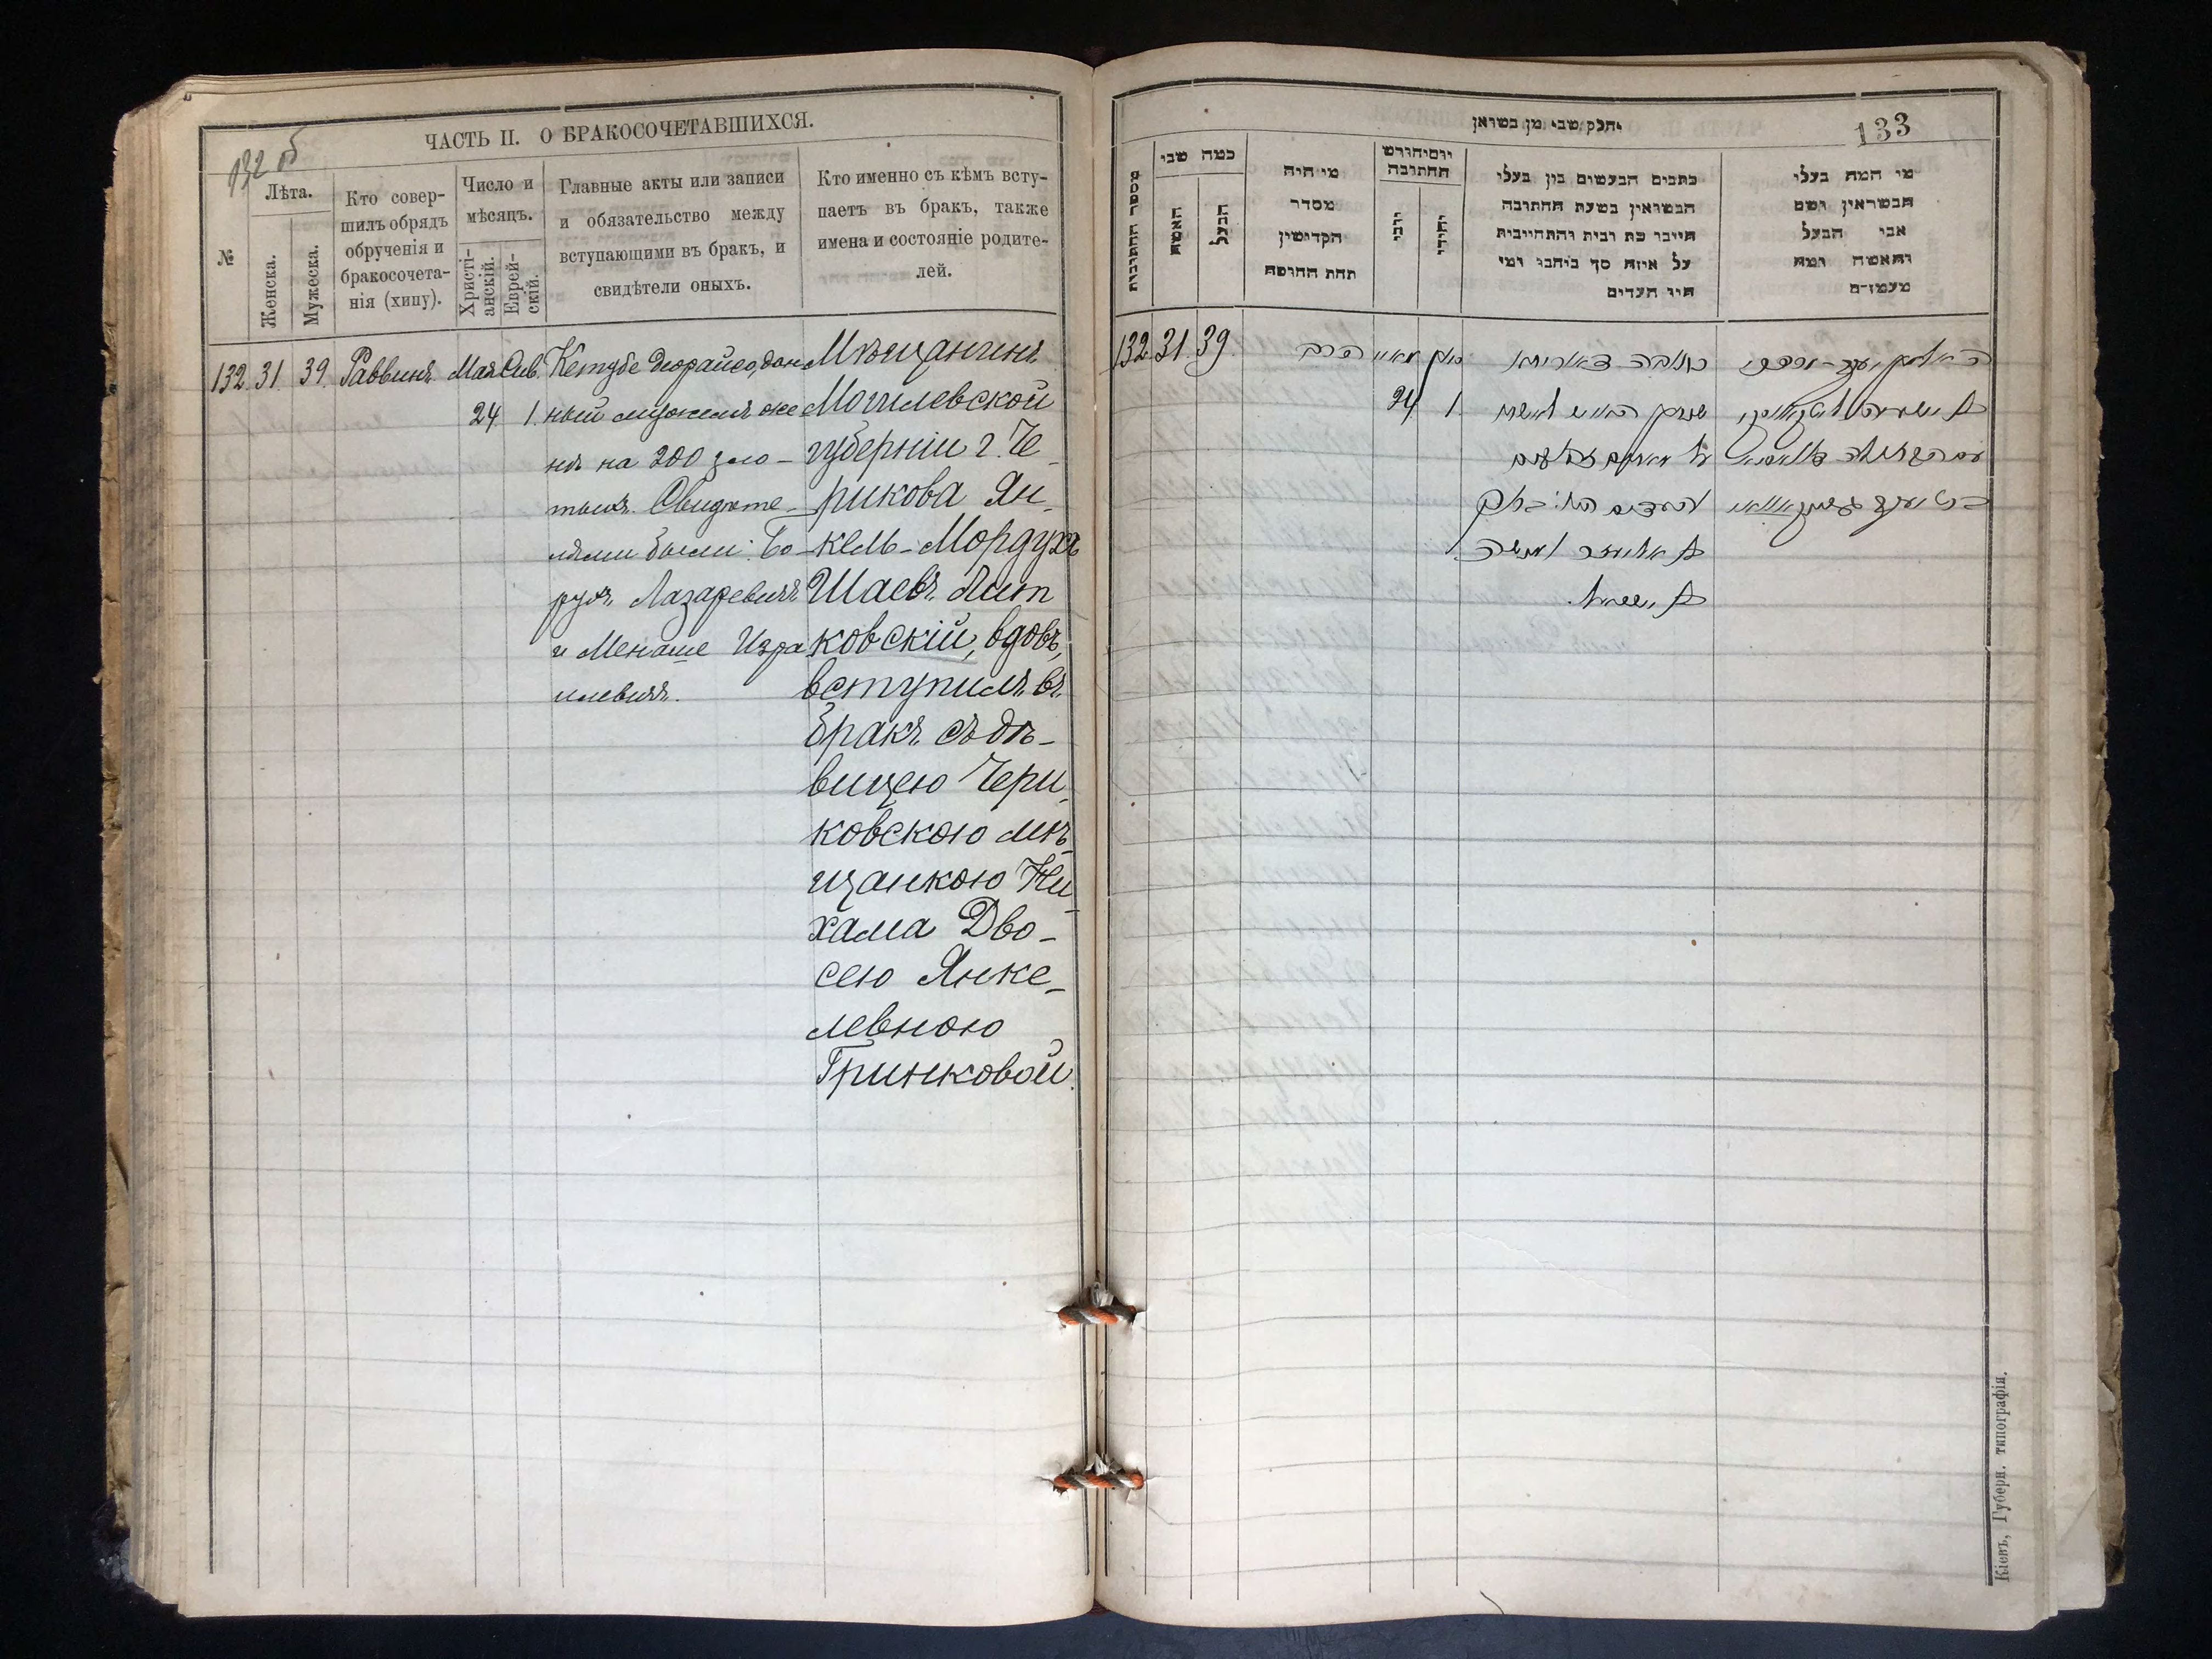 132 об
ЧАСТЬ II. О БРАКОСОЧЕТАВШИХСЯ.
№
Лѣта.
Женска.
Мужеска.
Кто совер-
шилъ обрядъ
обрученія и
бракосочета-
нія (хипу).
Число и
мѣсяцъ.
Христі-
анскій.
Еврей-
скій.
Главные акты или записи
и обязательство между
вступающими въ бракъ, и
свидѣтели оныхъ.
Кто именно съ кѣмъ всту-
паетъ въ бракъ, также
имена и состояніе родите-
лей.
132. 31. 39. Раввинъ Мая Сив.
24 1.
Кетубе Деорайсо, дан
ный мужемъ же
нѣ на 200 зло-
тыхъ. Свидѣте-
лями были: Бо-
рухъ Лазаревичъ
и Менаше Изра
илевичъ.
Мѣщанинъ
Могилевской
губерніи г. Че-
рикова Ян-
кель-Мордухъ
Шаевъ Лит
ковскій, вдовъ,
вступилъ въ
бракъ съ дѣ-
вицею Чери-
ковскою мѣ-
щанкою Ни-
хама Дво-
сею Янке-
левною
Гринковой.
133
חלק שני מן נשואין
מספר החתונות
כמה שני
האשה
הבעל
מי היה
מסדר
הקדושין
תחת החופה
יום וחודש
החתונה
כתבים הנעשים בין בעלי
הנשואין בשעת החתונה
היינו כת׳ ובית והתחייבות
על איזה סך ביחבו ומי
היו העדים
מי המה בעלי
הנשואין ושם
אבי הבעל
והאשה ומה
מעמדם
132. 31. 39.
הרב
מאי
סיון
24 1.
כתובה דאורייתא
והעדים הי׳: ברוך
ב׳ אליעזר ומנשה
ב׳ ישראל.
Кіевъ, Губерн. типографія.